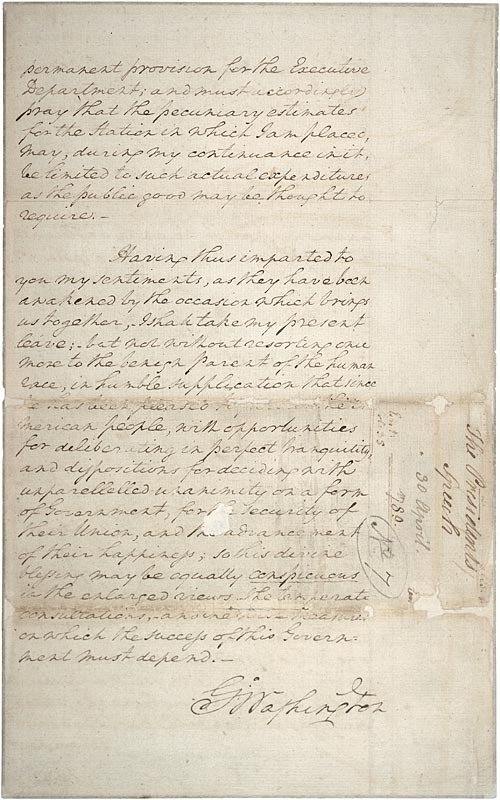 permanent provision for the Executive
Department; and must accordingly
pray that the pecuniary estimates
for the Station in which I am placed,
may, during my continuance in it,
be limited to such actual expenditures
as the public good may be thought to
require.–
Having thus imparted to
you my sentiments, as they have been
awakened by the occasion which brings
us together,–I shall take my present
leave;–but not without resorting once
more to the benign Parent of the human
race, in humble supplication that since
he has been pleased to favour the A
merican people, with opportunities
for deliberating in perfect tranquility,
and dispositions for deciding with
unparellelled unanimity on a form
of Government, for the Security of
their Union, and the advancement
of their happiness; so this divine
blessing may be equally conspicuous
in the enlarged views–the temperate
consultations,–and the wise measures
on which the success of this Govern-
ment must depend.–
G. Washington
The Presidents
Speech
30 April.
789
No 7